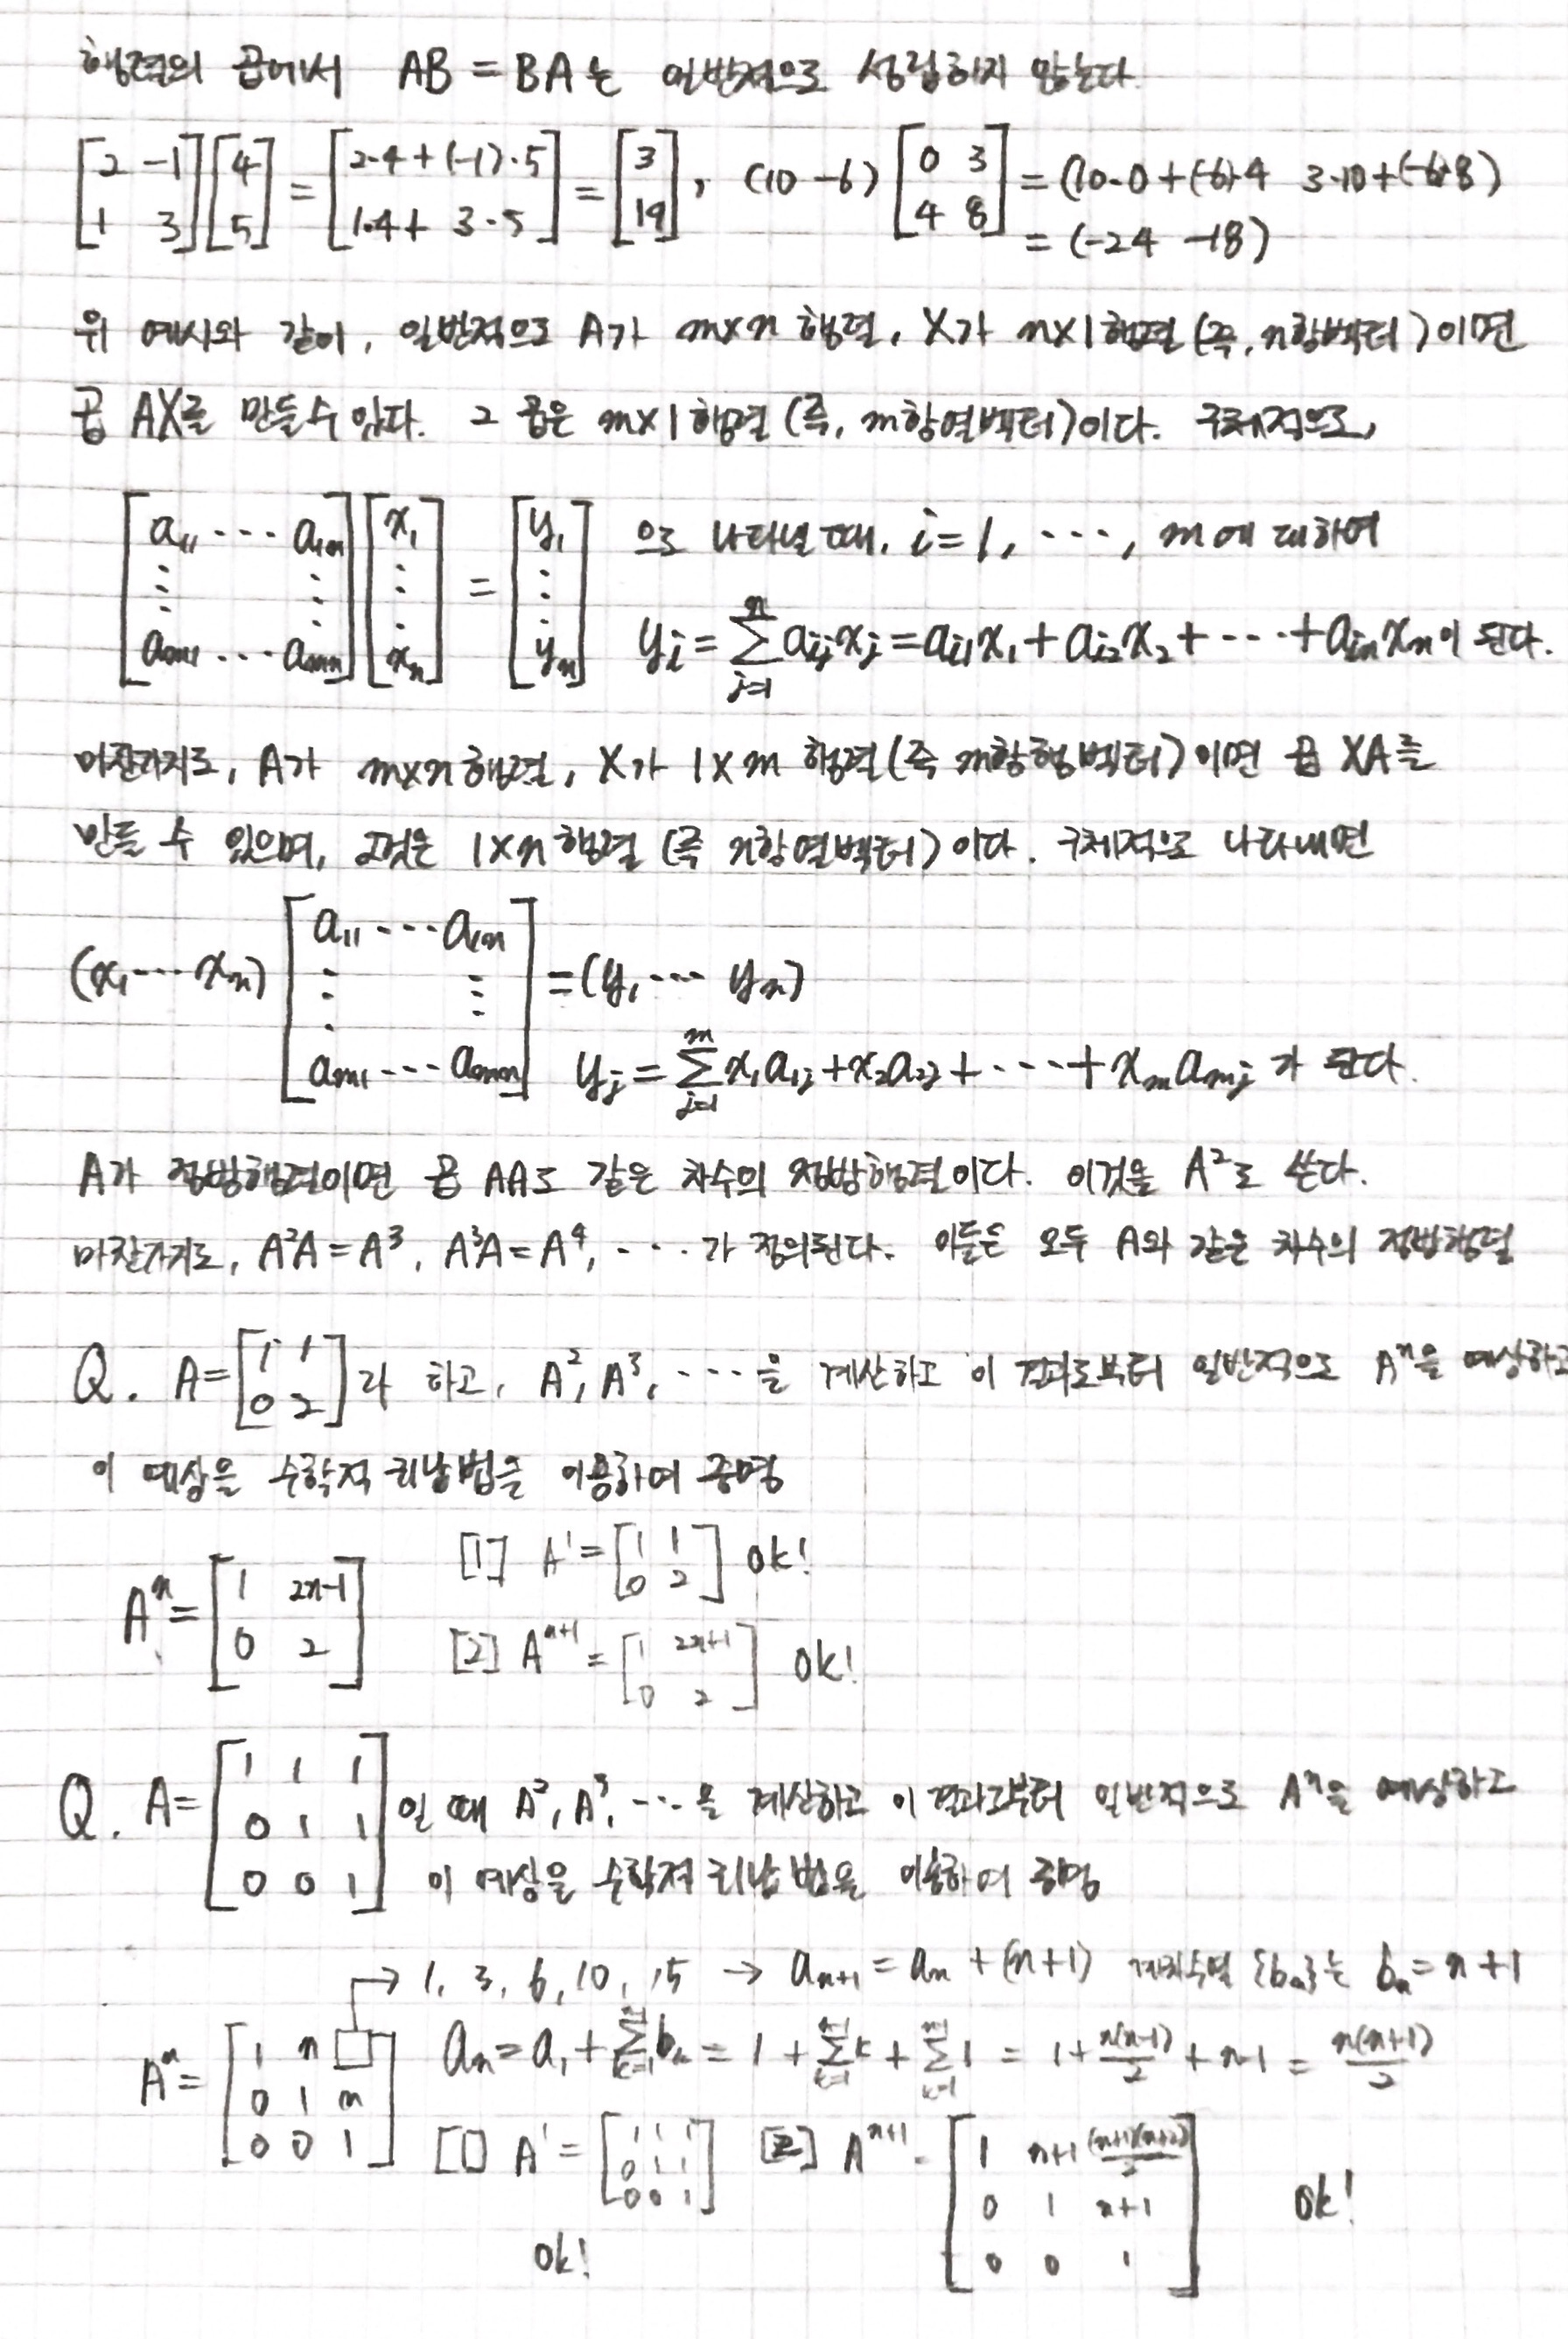 행렬의 곱에서 AB = BA는 일반적으로 성립하지 않는다.
[2 -1; 1 3][4; 5] = [2·4+(-1)·5; 1·4+3·5] = [3; 19], (10 -6)[0 3; 4 8] = (10·0+(-6)·4 3·10+(-6)·8)
= (-24 -18)
위 예시와 같이, 일반적으로 A가 m×n 행렬, X가 n×1행렬(즉, n항벡터)이면
곱 AX를 만들수 있다. 그 곱은 m×1행렬(즉, m항열벡터)이다. 구체적으로,
[a₁₁ ··· a₁ₙ; ⋮ ⋮; aₘ₁ ··· aₘₙ][x₁; ⋮; xₙ] = [y₁; ⋮; yₙ] 으로 나타낼 때, i=1, ···, m에 대하여
yᵢ = Σⱼ₌₁ⁿ aᵢⱼxⱼ = aᵢ₁x₁ + aᵢ₂x₂ + ··· + aᵢₙxₙ이 된다.
마찬가지로, A가 m×n행렬, X가 1×m 행렬(즉 m항행벡터)이면 곱 XA를
만들 수 있으며, 그것은 1×n행렬 (즉 n항열벡터)이다. 구체적으로 나타내면
(x₁ ··· xₙ)[a₁₁ ··· a₁ₙ; ⋮ ⋮; aₘ₁ ··· aₘₙ] = (y₁ ··· yₙ)
yⱼ = Σⱼ₌₁ᵐ x₁a₁ⱼ + x₂a₂ⱼ + ··· + xₘaₘⱼ 가 된다.
A가 정방행렬이면 곱 AA도 같은 차수의 정방행렬이다. 이것을 A²로 쓴다.
마찬가지로, A²A = A³, A³A = A⁴, ···가 정의된다. 이들은 모두 A와 같은 차수의 정방행렬
Q. A = [1 1; 0 2]라 하고, A², A³, ···을 계산하고 이 결과로부터 일반적으로 Aⁿ을 예상하고
이 예상을 수학적 귀납법을 이용하여 증명
Aⁿ = [1 2n-1; 0 2] [1] A¹ = [1 1; 0 2] ok!
[2] Aⁿ⁺¹ = [1 2n+1; 0 2] ok!
Q. A = [1 1 1; 0 1 1; 0 0 1]일 때 A², A³, ···을 계산하고 이 결과로부터 일반적으로 Aⁿ을 예상하고
이 예상을 수학적 귀납법을 이용하여 증명
→ 1, 3, 6, 10, 15 → aₙ₊₁ = aₙ + (n+1) 계차수열 {bₙ}는 bₙ = n+1
Aⁿ = [1 n □; 0 1 n; 0 0 1] aₙ = a₁ + Σₖ₌₁ⁿ⁻¹ bₖ = 1 + Σₖ₌₁ⁿ⁻¹ k + Σₖ₌₁ⁿ⁻¹ 1 = 1 + n(n-1)/2 + n-1 = n(n+1)/2
[1] A¹ = [1 1 1; 0 1 1; 0 0 1] ok! [2] Aⁿ⁺¹ = [1 n+1 (n+1)(n+2)/2; 0 1 n+1; 0 0 1] ok!